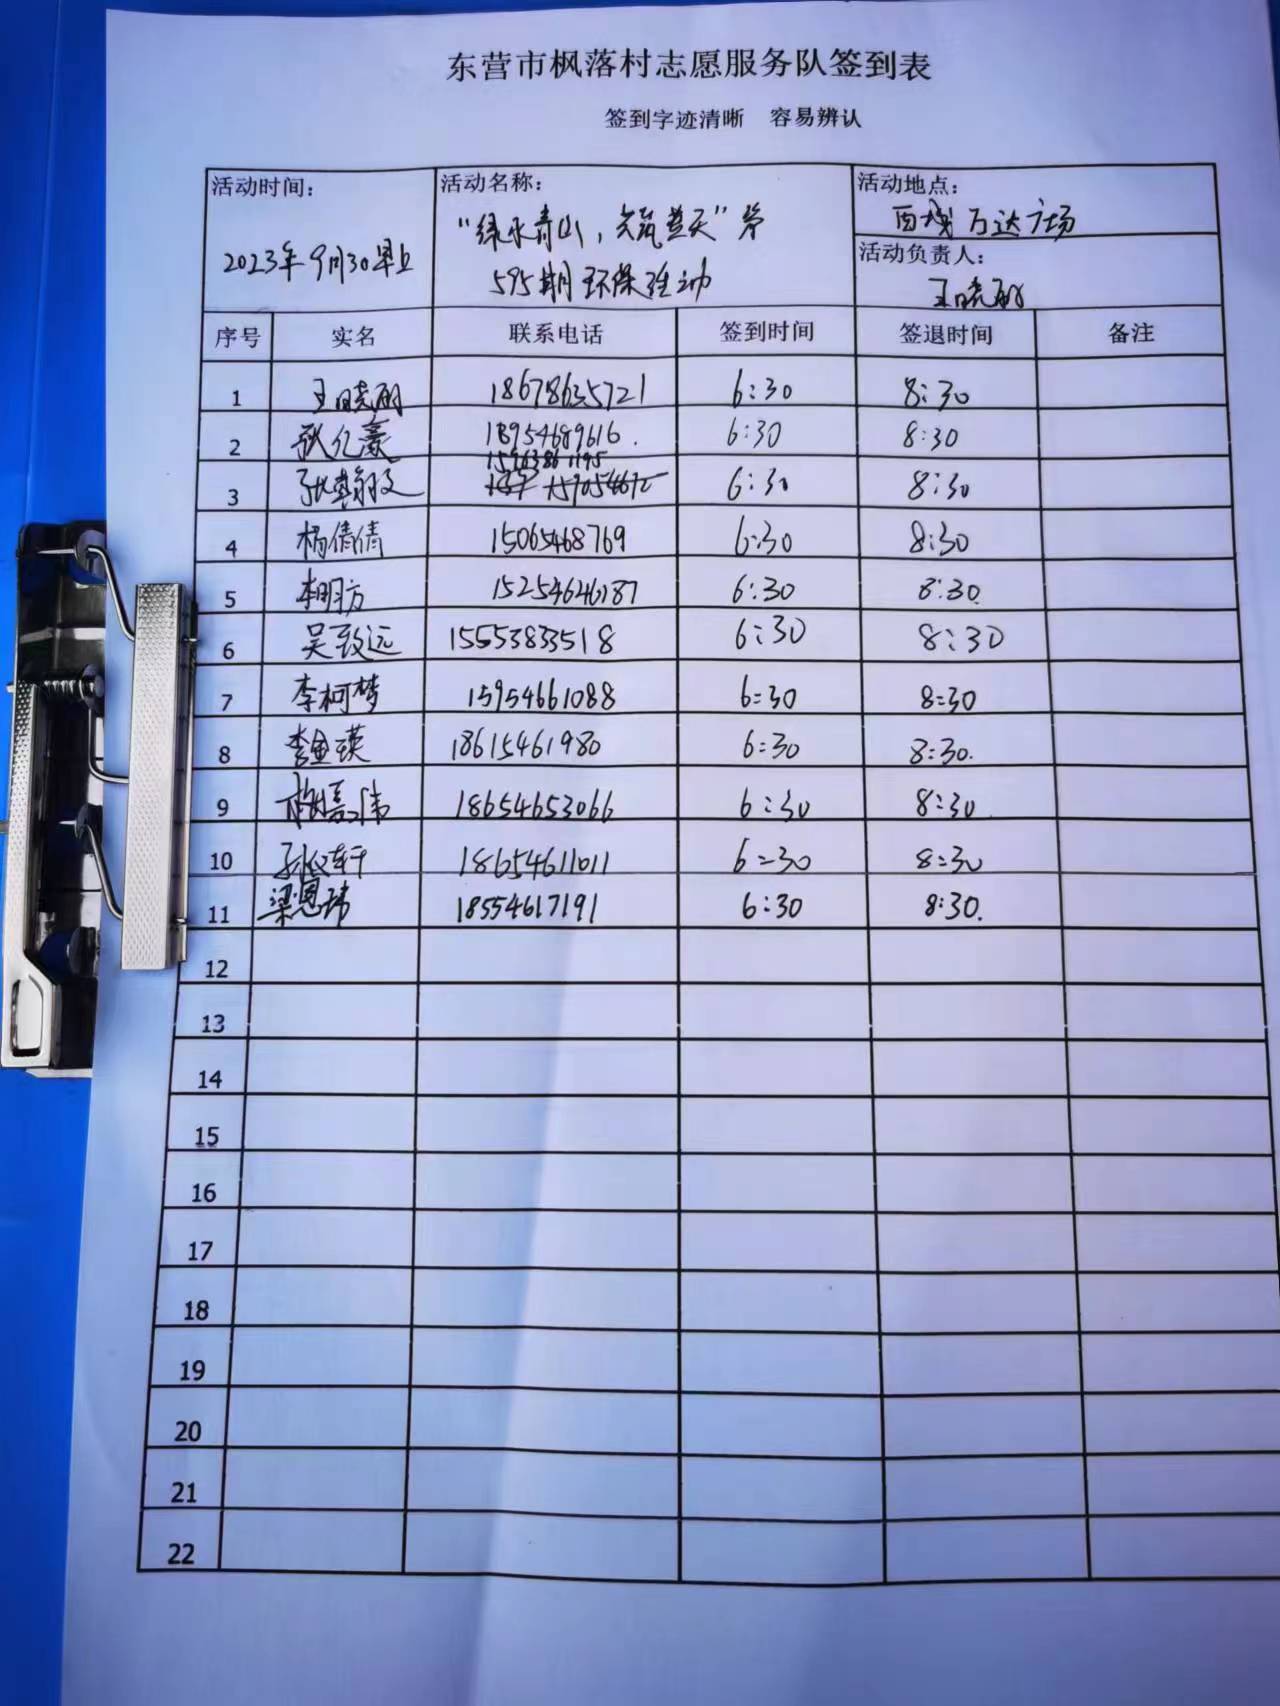 东营市枫落村志愿服务队签到表
签到字迹清晰 容易辨认
活动时间： 活动名称： 活动地点：
2023年9月30早上 “绿水青山，共筑蓝天”第 西城万达广场
595期环保活动 活动负责人：
王晓丽
序号 实名 联系电话 签到时间 签退时间 备注
1 王晓丽 18678635721 6:30 8:30
2 张亿豪 18954689616. 6:30 8:30
3 15963861195 6:30 8:30
4 杨倩倩 15065468769 6:30 8:30
5 李明方 15254646187 6:30 8:30.
6 吴致远 15553833518 6:30 8:30
7 李柯梦 15954661088 6:30 8:30
8 李金瑛 18615461980 6:30 8:30.
9 18654653066 6:30 8:30
10 18654611011 6:30 8:30
11 梁恩玮 18554617191 6:30 8:30.
12
13
14
15
16
17
18
19
20
21
22